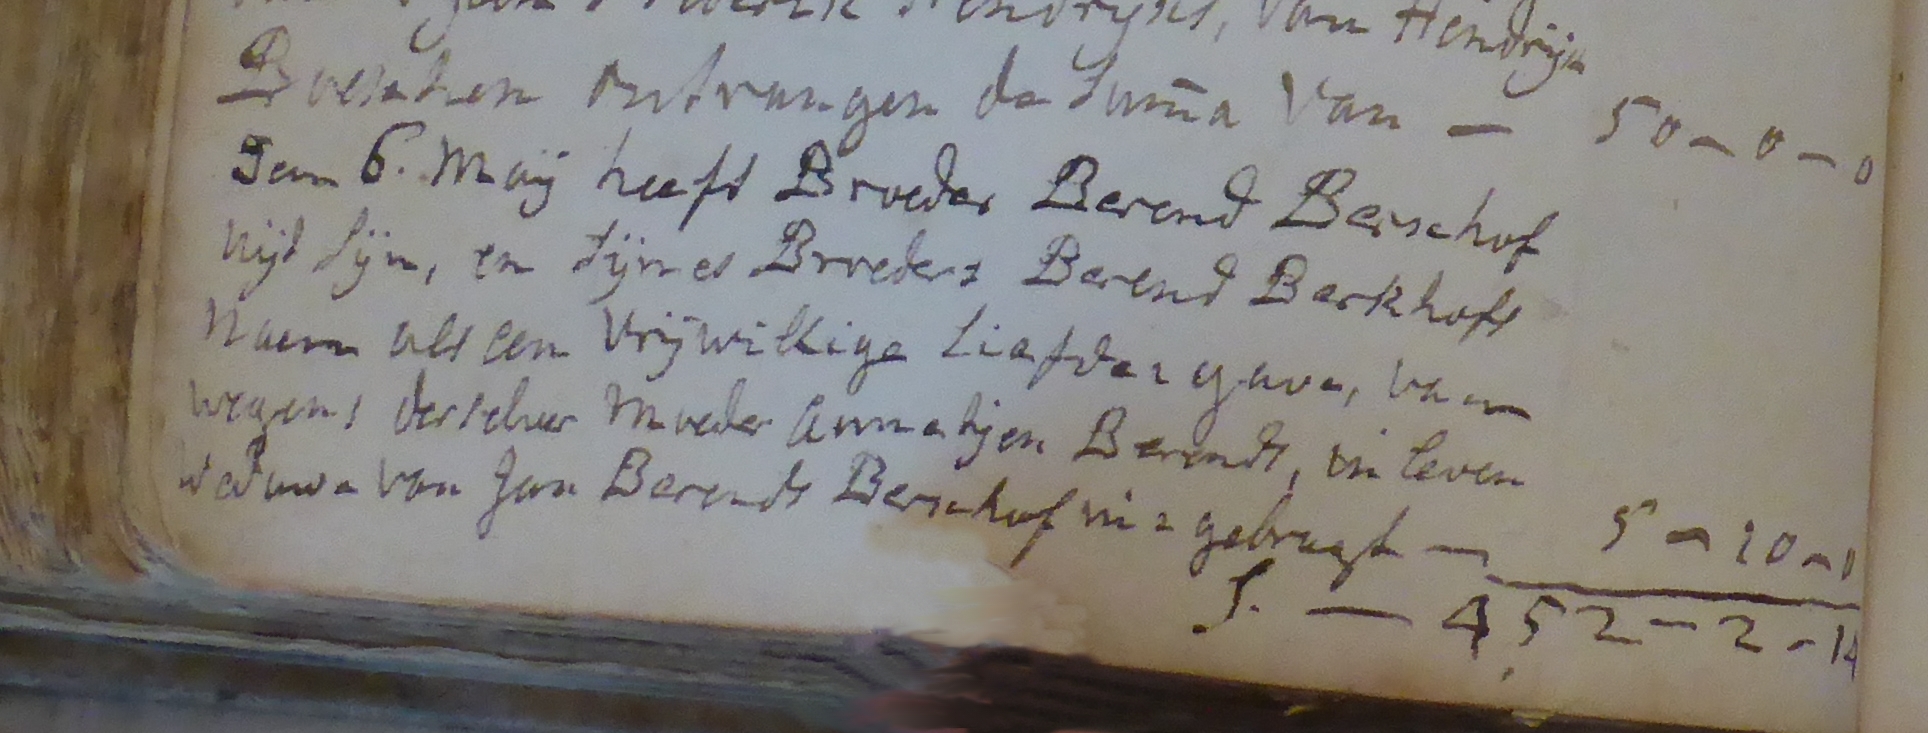 Hendrijks, van Hendrijk
Boeschen ontvangen de Suma van — 50 – 0 – 0
Den 6. Maij heeft Broeder Berend Berschof
uijt sijn, en sijnes Broeders Berend Berkhofs
Naem als een Vrijwillige Liefdes gave, van
wegens derselver Moeder Annatijen Berends, in leven
Weduwe van Jan Berends Berschof in gebragt — 5 – 10 – 0
S. — 452 – 2 – 14